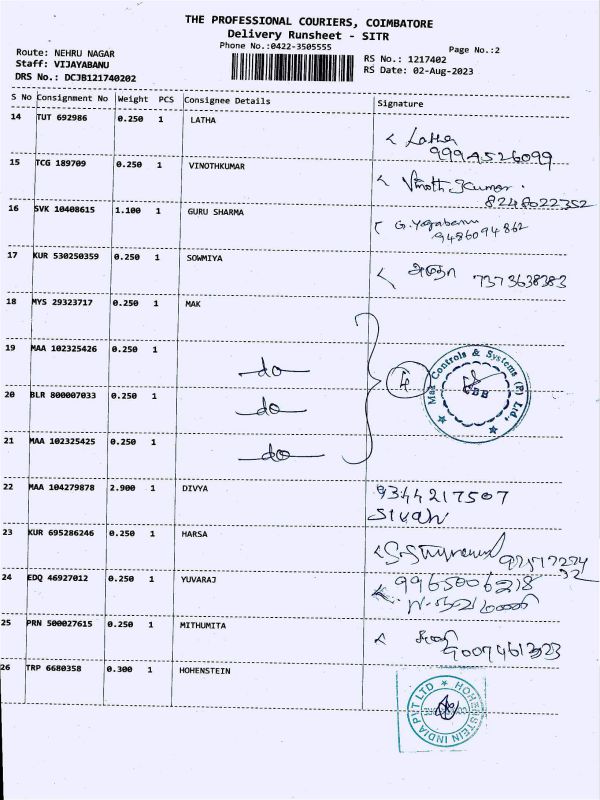 THE PROFESSIONAL COURIERS, COIMBATORE
Delivery Runsheet - SITR
Phone No.:0422-3505555
Page No.:2
Route: NEHRU NAGAR
Staff: VIJAYABANU
DRS No.: DCJB121740202
RS No.: 1217402
RS Date: 02-Aug-2023
S No Consignment No Weight PCS Consignee Details Signature
14 TUT 692986 0.250 1 LATHA
Latha
9994526099
15 TCG 189709 0.250 1 VINOTHKUMAR
Vinoth Kumar.
8248022352
16 SVK 10408615 1.100 1 GURU SHARMA
G. Yogabanu
9486094862
17 KUR 530250359 0.250 1 SOWMIYA
7373638383
18 MYS 29323717 0.250 1 MAK
19 MAA 102325426 0.250 1
do
20 BLR 800007033 0.250 1
do
21 MAA 102325425 0.250 1
do
4
Mak Controls & Systems (P) Ltd.,
CBB
22 MAA 104279878 2.900 1 DIVYA
9344217507
23 KUR 695286246 0.250 1 HARSA
24 EDQ 46927012 0.250 1 YUVARAJ
9965006218
25 PRN 500027615 0.250 1 MITHUMITA
26 TRP 6680358 0.300 1 HOHENSTEIN
HOHENSTEIN INDIA PVT LTD